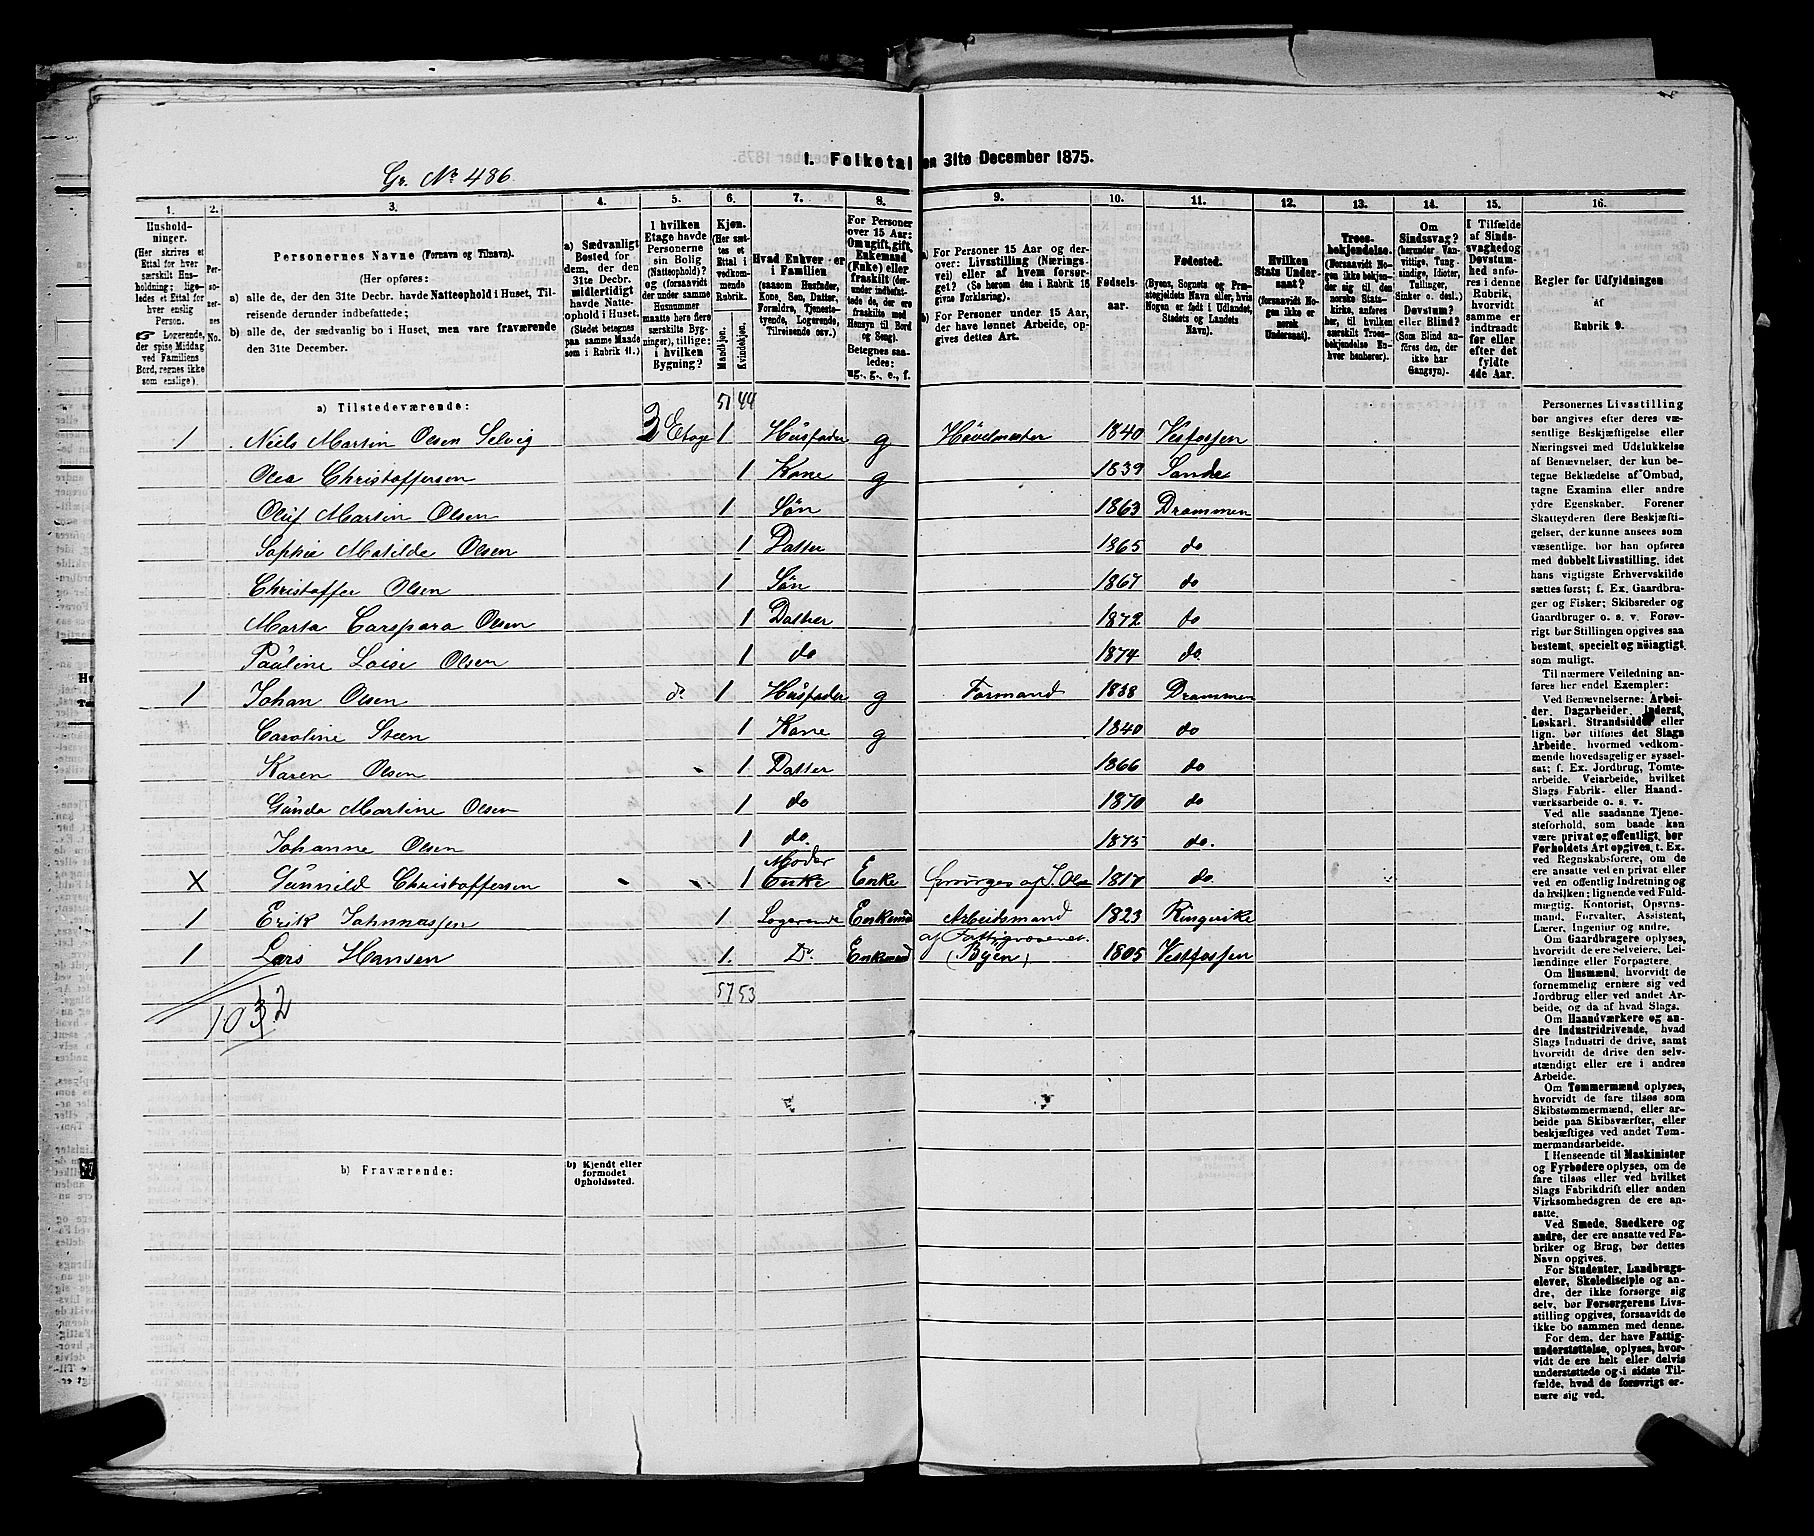 1. Folketallen 31te December 1875.
Gr. No 486.
1. 2. 3. 4. 5. 6. 7. 8. 9. 10. 11. 12. 13. 14. 15. 16.
Husholdninger. (Her skrives et Ettal for hvert særskilt Husholdning; ligeledes et Ettal for hver enslig Person. Logerende, der spise Middag ved Familiens Bord, regnes ikke som enslige).
Personernes No.
Personernes Navne (Fornavn og Tilnavn).
(Her opføres:
a) alle de, der den 31te Decbr. havde Natteophold i Huset, Tilreisende derunder indbefattede;
b) alle de, der sædvanlig bo i Huset, men vare fraværende den 31te December.
a) Sædvanligt Bosted for dem, der den 31te Decbr. midlertidigt havde Natteophold i Huset. (Stedet betegnes paa samme Maade som i Rubrik 11.)
I hvilken Etage havde Personerne sin Bolig (Natteophold)? (forsaavidt der under samme Husnummer maatte høre flere særskilte Bygninger), tillige: i hvilken Bygning?
Kjøn. (Her sættes et Ettal i vedkommende Rubrik.
Mandkjøn. Kvindekjøn.
Hvad Enhver er i Familien (saasom Husfader, Kone, Søn, Datter, Forældre, Tjenestetyende, Logerende, Tilreisende osv.).
For Personer over 15 Aar: Om ugift, gift, Enkemand (Enke) eller fraskilt (derunder indbefattede de, der ere fraskilte med Hensyn til Bord og Seng). Betegnes saaledes: ug., g., e., f.
a) For Personer 15 Aar og derover: Livsstilling (Næringsvei) eller af hvem forsørget? (Se herom den i Rubrik 16 givne Forklaring).
b) For Personer under 15 Aar, der have lønnet Arbeide, opgives dettes Art.
Fødselsaar.
Fødested. (Byens, Sognets og Præstegjeldets Navn eller, hvis Nogen er født i Udlandet, Stedets og Landets Navn).
Hvilken Stats Undersaat? (forsaavidt Nogen ikke er norsk Undersaat).
Troesbekjendelse. (Forsaavidt Nogen ikke bekjender sig til den norske Statskirke, anføres her, til hvilken særskilt Troesbekjendelse Enhver henhører).
Om Sindssvag? (herunder Vanvittige, Tungsindige, Idioter, Tullinger, Sinker o. desl.) Døvstum? eller Blind? (Som Blind anføres den, der ikke har Gangsyn).
I Tilfælde af Sindssvaghed og Døvstumhed anføres i denne Rubrik, hvorvidt samme er indtraadt før eller efter det fyldte 4de Aar.
Regler for Udfyldningen af Rubrik 9.
a) Tilstedeværende: 51 44
1 Niels Martin Olsen Selvig 3 Etage 1 Husfader g Høvelmester 1840 Vestfossen
Olea Christoffersen 1 Kone g 1839 Sande
Oluf Martin Olsen 1 Søn 1863 Drammen
Sophie Matilde Olsen 1 Datter 1865 do
Christoffer Olsen 1 Søn 1867 do
Marta Caspara Olsen 1 Datter 1872 do
Pauline Loise Olsen 1 do 1874 do
1 Johan Olsen do 1 Husfader g Formand 1838 Drammen
Caroline Steen 1 Kone g 1840 do
Karen Olsen 1 Datter 1866 do
Gunda Martine Olsen 1 do 1870 do
Johanne Olsen 1 do. 1875 do.
Moder
X Gunnild Christoffersen 1 Enke Enke forsørges af J. Olsen 1817 do
1 Erik Johnnassen 1 Logerende Enkemand Arbeidsmand 1823 Ringerike
af Fattigvæsenet
1 Lars Hansen 1 Do Enkemand (Byen) 1805 Vestfossen
57 53
10 3 12
b) Fraværende:
b) Kjendt eller formodet Opholdssted.
Personernes Livsstilling
bør angives efter deres væ-
sentlige Beskjæftigelse eller
Næringsvei med Udelukkelse
af Benævnelser, der kun be-
tegne Beklædelse af Ombud,
tagne Examina eller andre
ydre Egenskaber. Forener
Skatteyderen flere Beskjæfti-
gelser, der kunne ansees som
væsentlige, bør han opføres
med dobbelt Livsstilling, idet
hans vigtigste Erhvervskilde
sættes først; f. Ex. Gaardbru-
ger og Fisker; Skibsreder og
Gaardbruger o. s. v. Forøv-
rigt bør Stillingen opgives saa
bestemt, specielt og nøiagtigt
som muligt.
Til nærmere Veiledning an-
føres her endel Exempler:
Ved Benævnelserne: Arbei-
der, Dagarbeider, Inderst,
Løskarl, Strandsidder eller
lign. bør tilføies det Slags
Arbeide, hvormed vedkom-
mende hovedsagelig er syssel-
sat; f. Ex. Jordbrug, Tomte-
arbeide, Veiarbeide, hvilket
Slags Fabrik- eller Haand-
værksarbeide o. s. v.
Ved alle saadanne Tjene-
steforhold, som baade kan
være privat og offentligt, bør
Forholdets Art opgives, t. Ex.
ved Regnskabsførere, om de
ere ansatte ved en privat eller
ved en offentlig Indretning og
da hvilken; lignende ved Fuld-
mægtig, Kontorist, Opsyns-
mand, Forvalter, Assistent,
Lærer, Ingeniør og andre.
Om Gaardbrugere oplyses,
hvorvidt de ere Selveiere, Lei-
lændinge eller Forpagtere.
Om Husmænd, hvorvidt de
fornemmelig ernære sig ved
Jordbrug eller ved andet Ar-
beide, og da af hvad Slags.
Om Haandværkere og an-
dre Industridrivende, hvad
Slags Industri de drive, samt
hvorvidt de drive den selv-
stændigt eller ere i andres
Arbeide.
Om Tømmermænd oplyses,
hvorvidt de fare tilsøs som
Skibstømmermænd, eller ar-
beide paa Skibsværfter, eller
beskjæftiges ved andet Tøm-
mermandsarbeide.
I Henseende til Maskinister
og Fyrbødere oplyses, om de
fare tilsøs eller ved hvilket
Slags Fabrikdrift eller anden
Virksomhedsgren de ere an-
satte.
Ved Smede, Snedkere og
andre, der ere ansatte ved Fa-
briker og Brug, bør dettes
Navn opgives.
For Studenter, Landbrugs-
elever, Skoledisciple og an-
dre, der ikke forsørge sig
selv, bør Forsørgerens Livs-
stilling opgives, forsaavidt de
ikke bo sammen med denne.
For dem, der have Fattig-
understøttelse, oplyses, hvor-
vidt de ere helt eller delvis
understøttede og i sidste Til-
fælde, hvad de forøvrigt er-
nære sig ved.